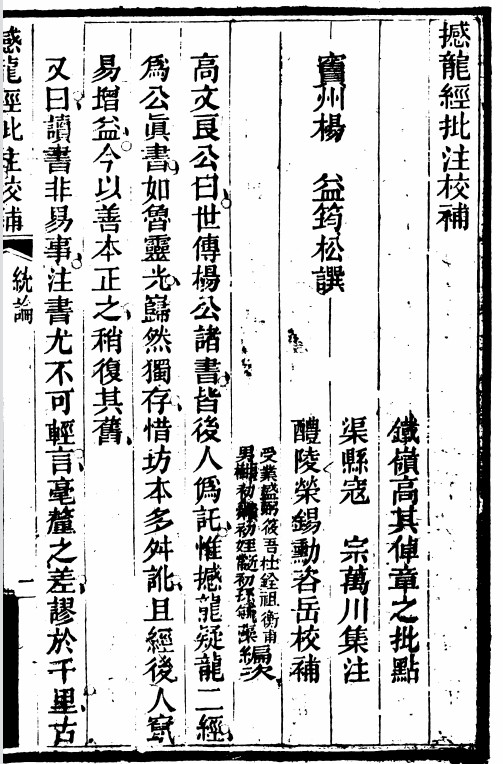 撼龍經批注校補
竇州楊　益筠松譔
鐵嶺高其倬章之批點
渠縣寇　宗萬川集注
醴陵榮錫勳咨岳校補
受業盛
吾杜銓祖衡甫
男
編次
高文良公曰世傳楊公諸書皆後人僞託惟撼龍疑龍二經
爲公眞書如魯靈光巋然獨存惜坊本多舛訛且經後人竄
易增益今以善本正之稍復其舊
又曰讀書非易事注書尤不可輕言毫釐之差謬於千里古
撼龍經批注校補
統論
一